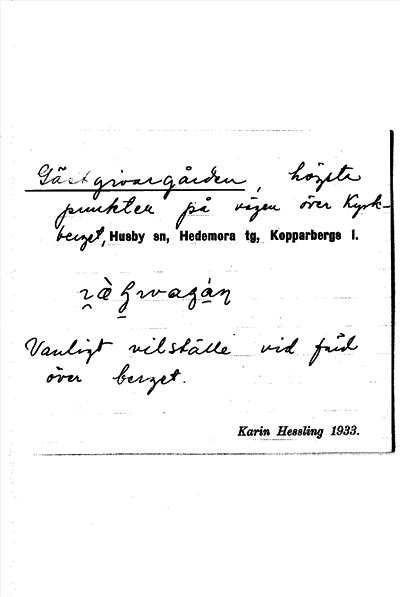 Gästgivargården, högsta
punkten på vägen över Kyrk-
berget, Husby sn, Hedemora tg, Kopparbergs l.
Vanligt vilställe vid färd
över berget.
Karin Hessling 1933.